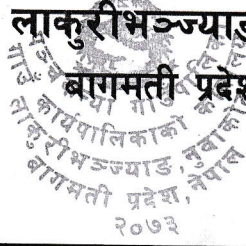 लाकुरीभञ्ज्या
बागमती प्रदेश
कार्यपालिकाको
लाकुरीभञ्ज्याङ, नुवाकोट
बागमती प्रदेश, नेपाल
२०७३